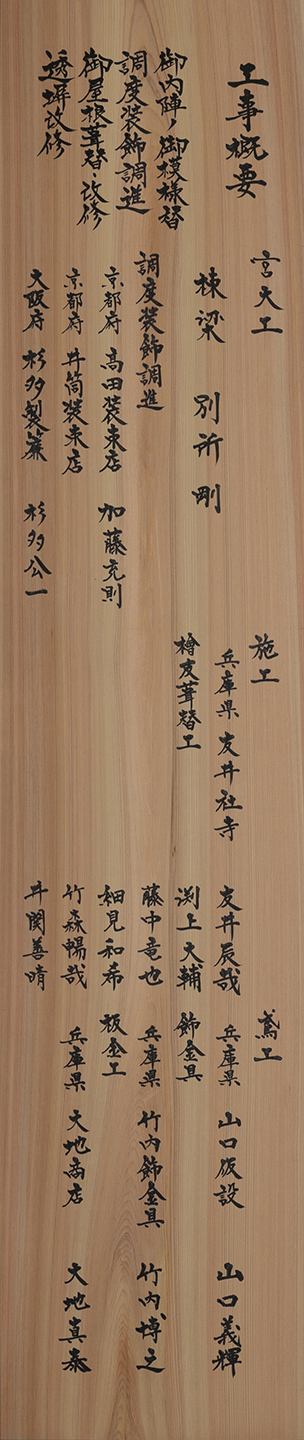 工事概要
御内陣ノ御模様替
調度装飾調進
御屋根葺替、改修
透塀改修
宮大工
棟梁 別所剛
調度装飾調進
京都府 高田装束店 加藤充則
京都府 井筒装束店
大阪府 杉多製簾 杉多公一
施工
兵庫県 友井社寺
檜皮葺替工
友井辰哉
渕上大輔
藤中竜也
細見和希
竹森暢哉
井関善晴
鳶工
兵庫県 山口仮設 山口義輝
飾金具
兵庫県 竹内飾金具 竹内博之
板金工
兵庫県 大地商店 大地真泰